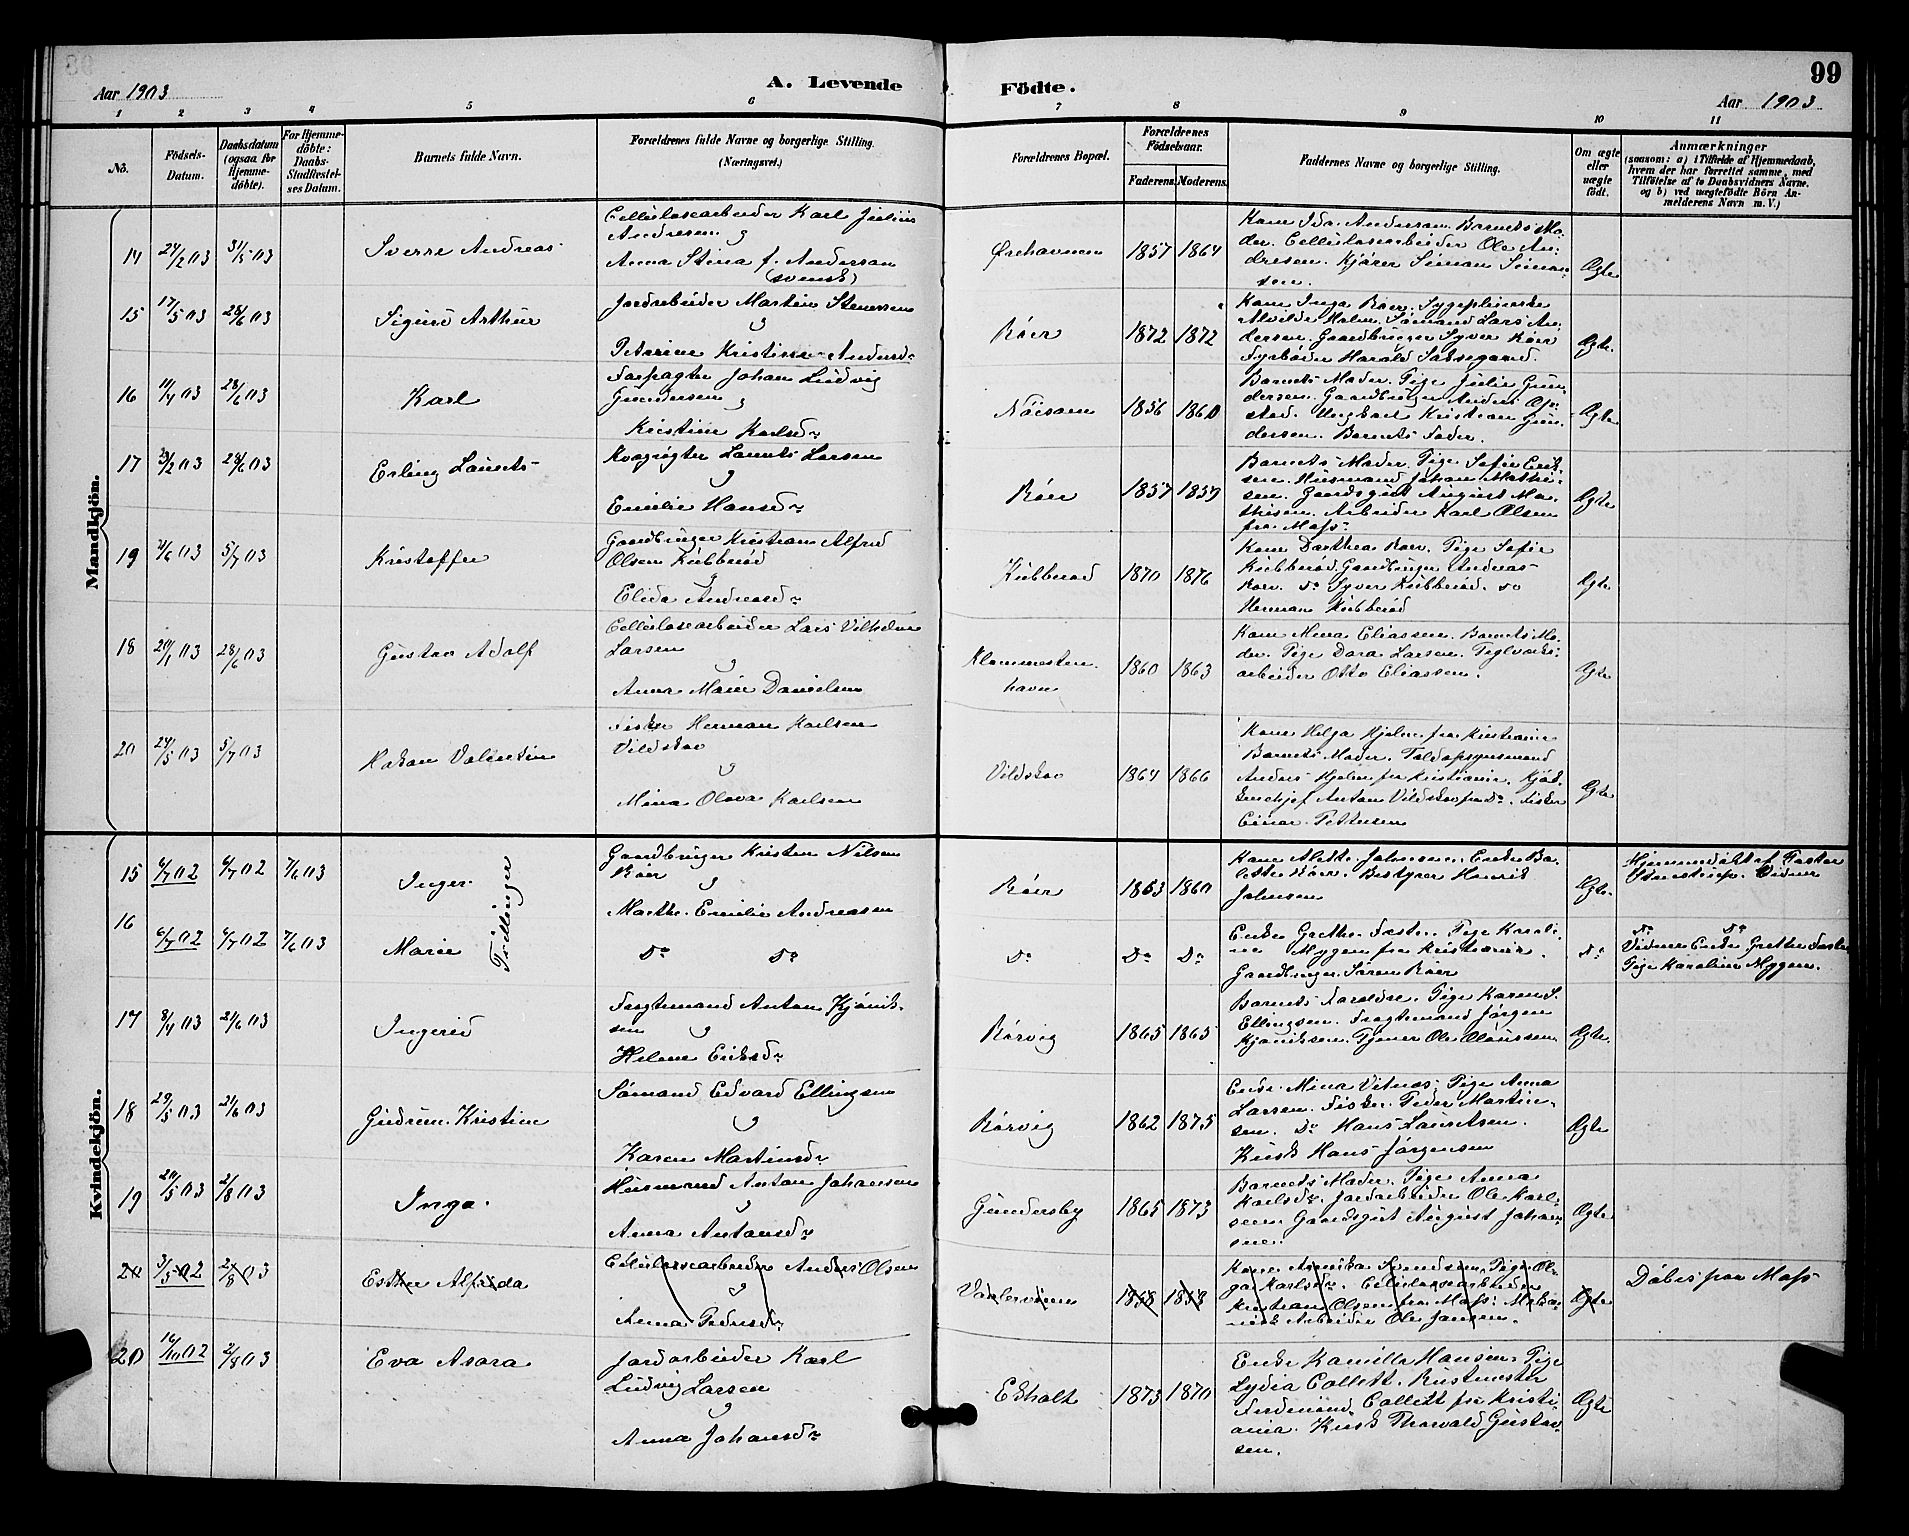 99
Aar 1903
A. Levende
Födte.
Aar 1903
1 2 3 4 5 6 7 8 9 10 11
No.
Födsels-
Datum.
Daabsdatum
(ogsaa for
Hjemme-
döbte).
For Hjemme-
döbte:
Daabs-
Stadfæstel-
ses Datum.
Barnets fulde Navn.
Forældrenes fulde Navne og borgerlige Stilling.
(Næringsvei.)
Forældrenes Bopæl.
Forældrenes
Födselsaar.
Faderens.
Moderens.
Faddernes Navne og borgerlige Stilling.
Om ægte
eller
uægte
födt.
Anmærkninger
(saasom: a) i Tilfælde af Hjemmedaab,
hvem der har forrettet samme, med
Tilföielse af to Daabsvidners Navne.
og b) ved uægtefödte Börn An-
melderens Navn m. V.)
Mandkjön.
14 24/2 03 31/5 03
Sverre Andreas
Cellulosearbeider Karl Julius
Andresen
og
Anna Stina f. Anderson
(svensk)
Örehavnen
1857 1864
Kone Ida Anderson. Barnets Mo-
der. Cellulosearbeider Ole An-
dresen. Kjörer Simon Simon-
sen.
Ægte
15 17/5 03 28/6 03
Sigurd Arthur
Jordarbeider Martin Stensen
og
Petrine Kristine Andersd.
Röer
1872 1872
Kone Inga Röer. Sygepleierske
Alvilde Holm. Sömand Lars An-
dersen. Gaardbruger Syver Röer
Fyrböder Harald Saksegaard.
Ægte.
16 11/4 03 28/6 03
Karl
Forpagter Johan Ludvig
Gundersen
og
Kristine Karlsdr
Nöisom
1856 1860
Barnets Moder. Pige Julie Gun-
dersen. Gaardbruger Anders Op-
stad. Ungkarl Kristian Gun-
dersen. Barnets Fader.
Ægte
17 23/2 03 28/6 03
Erling Laurits
Kvægrögter Laurits Larsen
og
Emilie Hansdr
Röer
1857 1857
Barnets Moder. Pige Sofie Erik-
sen. Husmand Johan Mathi-
sen. Gaardsgut August Ma-
thisen. Arbeider Karl Olsen
fra Moss
Ægte
19 4/6 03 5/7 03
Kristoffer
Gaardbruger Kristian Alfred
Olsen Kubberöd
og
Elida Andreasdr
Kubberöd
1870 1876
Kone Dorthea Röer. Pige Sofie
Kubberöd. Gaardbruger Andreas
Röer. Do Syver Kubberöd. Do
Herman Kubberöd
Ægte
18 20/1 03 28/6 03
Gustav Adolf
Cellulosearbeider Lars Vilhelm
Larsen
og
Anna Marie Danielsen
Klommesten
havn
1860 1863
Kone Mina Eliassen. Barnets Mo-
der. Pige Dora Larsen. Teglværks-
arbeider Otto Eliassen.
Ægte
20 24/5 03 5/7 03
Hakon Valentin
Fisker Herman Karlsen
Vildskov
og
Mina Olava Karlsen
Vildskov
1864 1866
Kone Helga Hjelm fra Kristiania
Barnets Moder. Toldopsynsmand
Anders Hjelm fra Kristiania. Kjök-
kenchef Anton Vildskov fra Do. Fisker
Einar Pettersen
Ægte
Kvindekjön.
15 6/7 02 6/7 02 7/6 03
Inger
Tvillinger
Gaardbruger Kristen Nilsen
Röer
og
Marthe Emilie Andreasen
Röer
1863 1860
Kone Alette Johnsen. Enke Bo-
lette Röer. Bestyrer Henrik
Johnsen
Ægte.
16 6/7 02 6/7 02 7/6 03
Marie
Do Do
Do
Do Do
Enke Grethe Foster. Pige Karoli-
ne Myggen fra Kristiania.
Gaardbruger Sören Röer
Do
Do Do
Vidner Enke Grethe Foster
Pige Karoline Myggen.
17 8/4 03 21/6 03
Ingerid
Fragtemand Anton Kjönik-
sen
og
Helene Eriksdr
Rörvig
1865 1865
Barnets Forældre. Pige Karen S.
Ellingsen. Fragtemand Jörgen
Kjöniksen. Tjener Ole Olaussen
Ægte.
18 29/5 03 21/6 03
Gudrun Kristine
Sömand Edvard Ellingsen
og
Karen Martinsdr
Rörvig
1862 1875
Enke Mina Vitnes. Pige Anna
Larsen. Fisker Peder Martin-
sen. Do Hans Lauritsen.
Kusk Hans Jörgensen
Ægte
19 20/5 03 2/8 03
Inga.
Husmand Anton Johansen
og
Anna Antonsdr
Gundersby
1865 1873
Barnets Moder. Pige Anna
Karlsdr. Jordarbeider Ole Karl-
sen. Gaardsgut August Johan-
sen.
Ægte
20 3/5 02 2/8 03
Esther Alfrida
Cellulosearbeider Anders Olsen
og
Anna Pedersdr
1868 1858
Kristian Olsen fra Moss.
Arbeider Ole Jansen.
Ægte
Döbes paa Moss
20 16/10 02 2/8 03
Eva Asora
Jordarbeider Karl
Ludvig Larsen
og
Anna Johansdr
Ekholt
1873 1870
Enke Kamilla Hansen. Pige
Lydia Collett. Rustmester
Ferdinand Collett fra Kristi-
ania. Kusk Thorvald Gustav-
sen.
Ægte